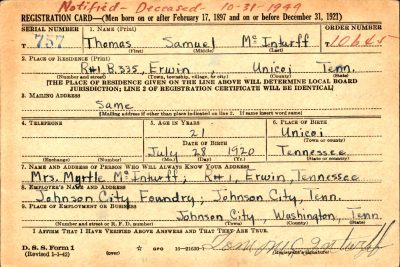 Notified - Deceased 10-31-1944
REGISTRATION CARD—(Men born on or after February 17, 1897 and on or before December 31, 1921)
SERIAL NUMBER 1. NAME (Print) ORDER NUMBER
737 Thomas Samuel McInturff 10645
(First) (Middle) (Last)
2. PLACE OF RESIDENCE (Print)
R#1 B.335, Erwin Unicoi Tenn.
(Number and street) (Town, township, village, or city) (County) (State)
[THE PLACE OF RESIDENCE GIVEN ON THE LINE ABOVE WILL DETERMINE LOCAL BOARD
JURISDICTION; LINE 2 OF REGISTRATION CERTIFICATE WILL BE IDENTICAL]
3. MAILING ADDRESS
Same
[Mailing address if other than place indicated on line 2. If same insert word same]
4. TELEPHONE 5. AGE IN YEARS 6. PLACE OF BIRTH
21 Unicoi
DATE OF BIRTH (Town or county)
July 28 1920 Tennessee
(Exchange) (Number) (Mo.) (Day) (Yr.) (State or country)
7. NAME AND ADDRESS OF PERSON WHO WILL ALWAYS KNOW YOUR ADDRESS
Mrs. Myrtle McInturff; R#1, Erwin, Tennessee
8. EMPLOYER'S NAME AND ADDRESS
Johnson City Foundry; Johnson City, Tenn.
9. PLACE OF EMPLOYMENT OR BUSINESS
Johnson City, Washington, Tenn
(Number and street or R. F. D. number) (Town) (County) (State)
I AFFIRM THAT I HAVE VERIFIED ABOVE ANSWERS AND THAT THEY ARE TRUE.
D. S. S. Form 1
(Revised 1-1-42) (over) GPO 16—21630 (Registrant's signature)